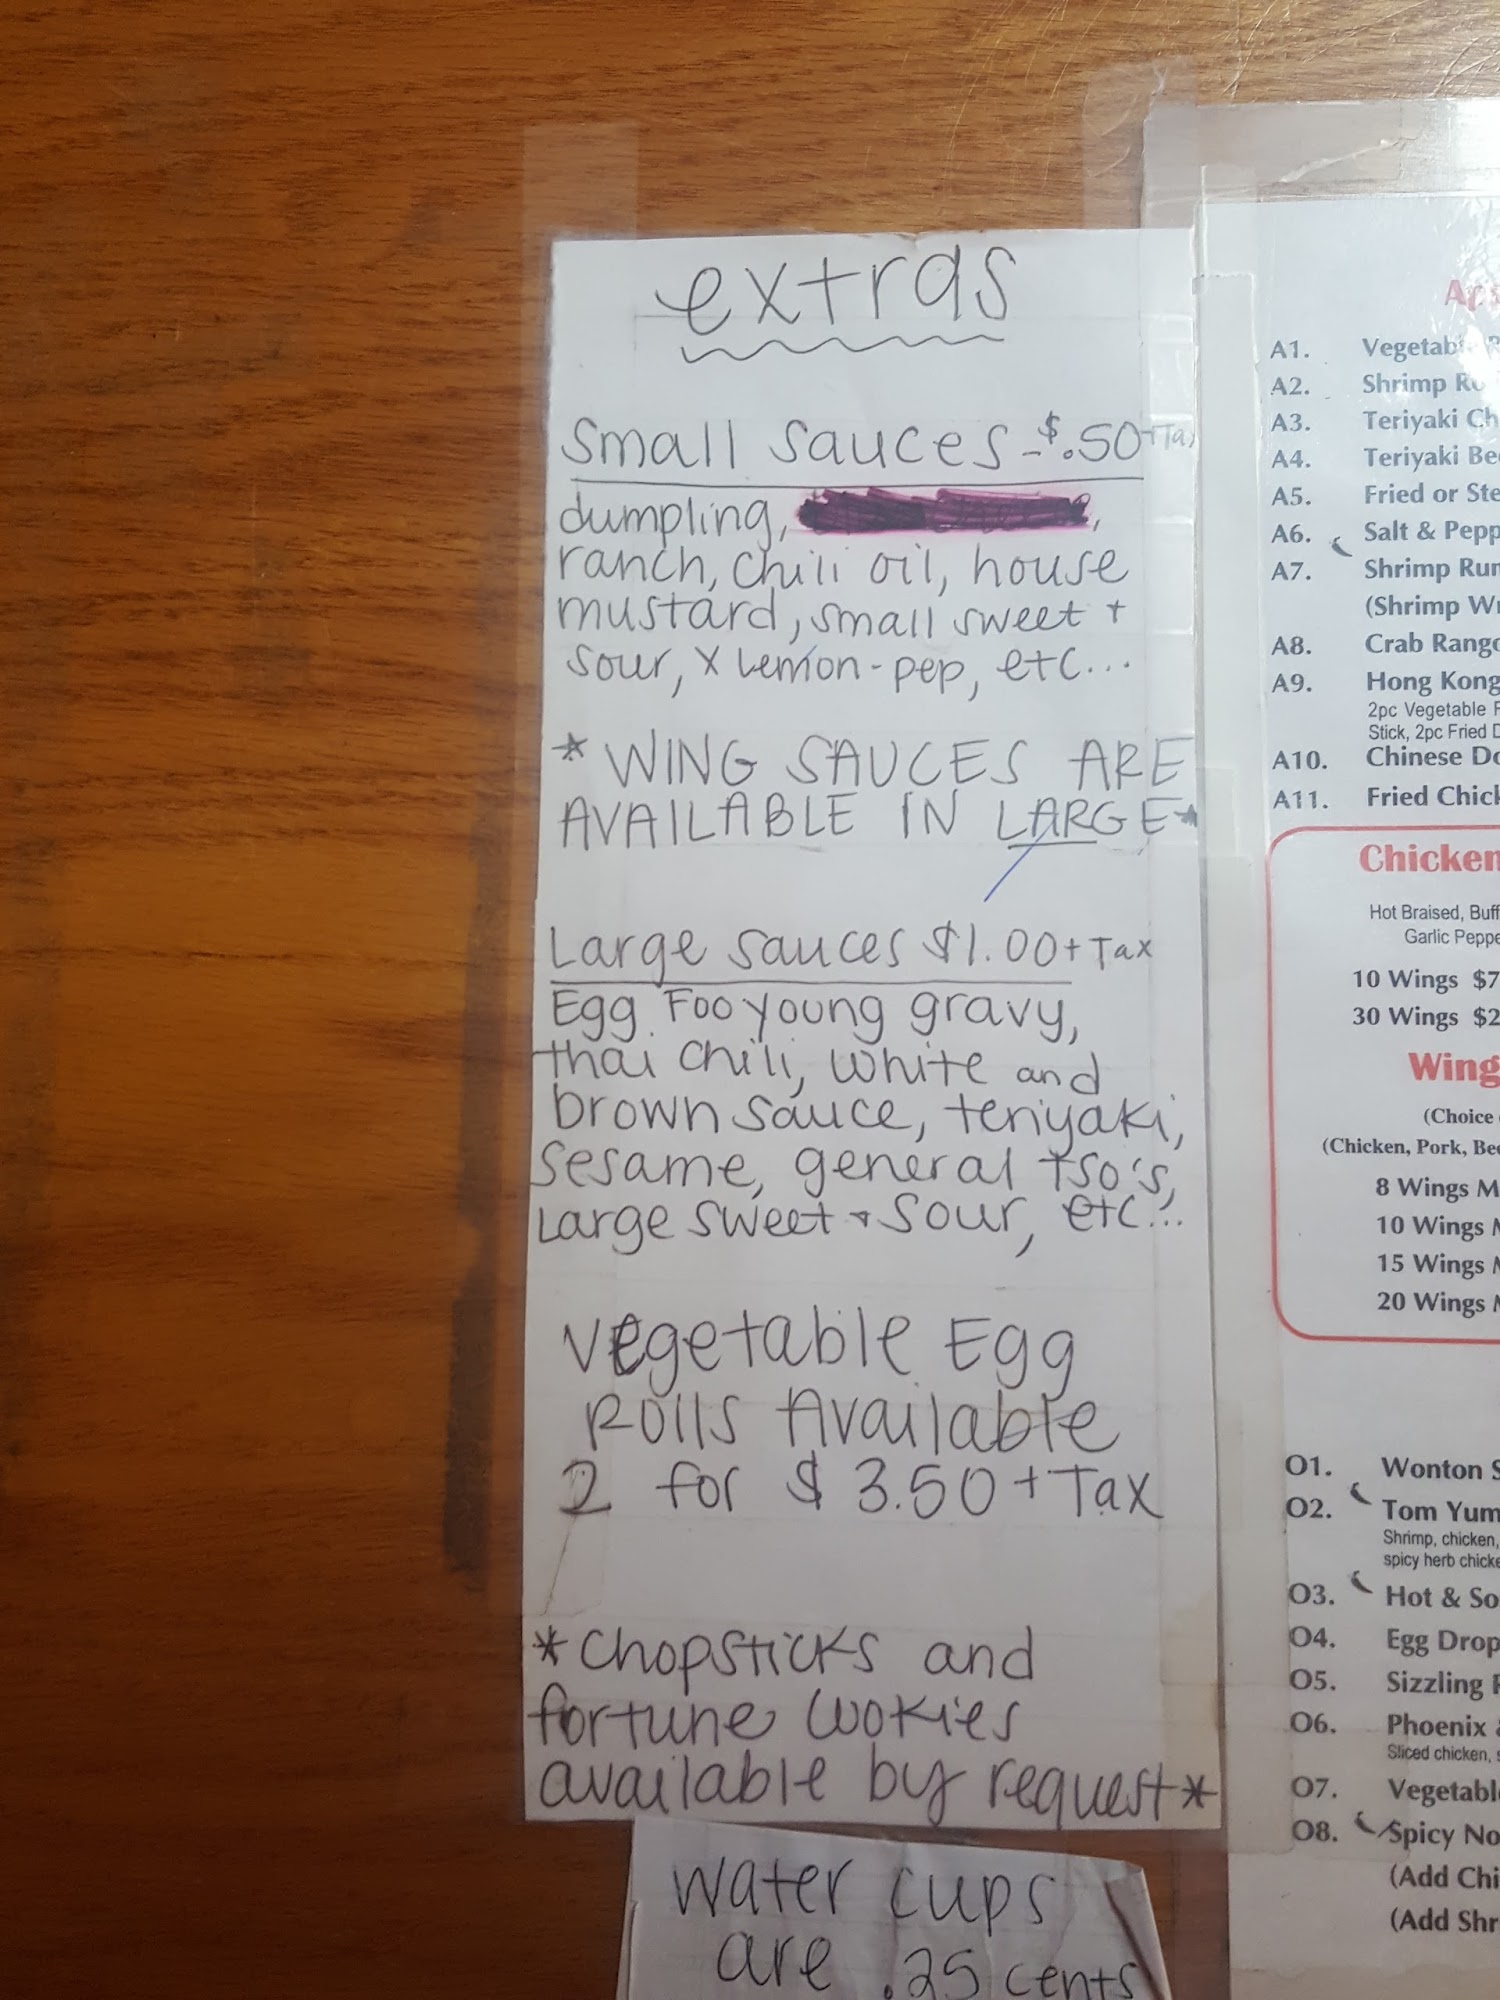 extras
small sauces - $.50 + Tax
dumpling,
ranch, chili oil, house
mustard, small sweet +
sour, x lemon-pep, etc...
* WING SAUCES ARE
AVAILABLE IN LARGE *
Large sauces $1.00 + Tax
Egg Foo young gravy,
thai chili, white and
brown sauce, teriyaki,
sesame, general tso's,
Large sweet + sour, etc...
Vegetable Egg
Rolls Available
2 for $3.50 + Tax
* Chopsticks and
fortune cookies
available by request *
water cups
are .25 cents
A1. Vegetabl
A2. Shrimp
A3. Teriyaki Ch
A4. Teriyaki Be
A5. Fried or Ste
A6. Salt & Pepp
A7. Shrimp
(Shrimp
A8. Crab
A9. Hong Kong
2pc Vegetable
Stick, 2pc Fried
A10. Chinese
A11. Fried Chic
Chicken
Hot Braised, Buff
Garlic Peppe
10 Wings $7
30 Wings $2
Wing
(Choice
(Chicken, Pork, Bee
8 Wings
10 Wings
15 Wings
20 Wings
O1. Wonton S
O2. Tom Yum
Shrimp, chicken,
spicy herb chick
O3. Hot & So
O4. Egg Drop
O5. Sizzling
O6. Phoenix &
Sliced chicken,
O7. Vegetabl
O8. Spicy No
(Add Chi
(Add Shr